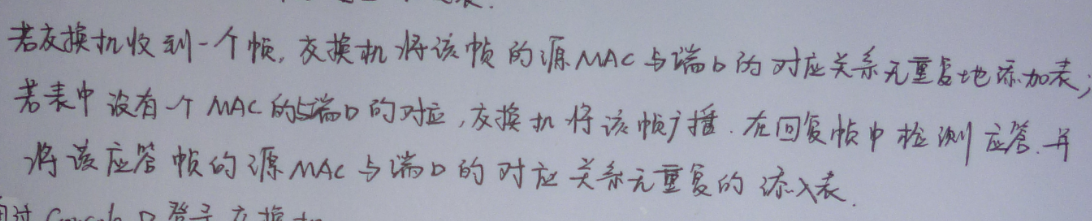 若交换机收到一个帧,交换机将该帧的源MAC与端口的对应关系无重复地添加表,
若表中没有一个MAC的与端口的对应,交换机将该帧广播.在回复帧中检测应答.并
将该应答帧的源MAC与端口的对应关系无重复的添入表.
过Console口登录交换